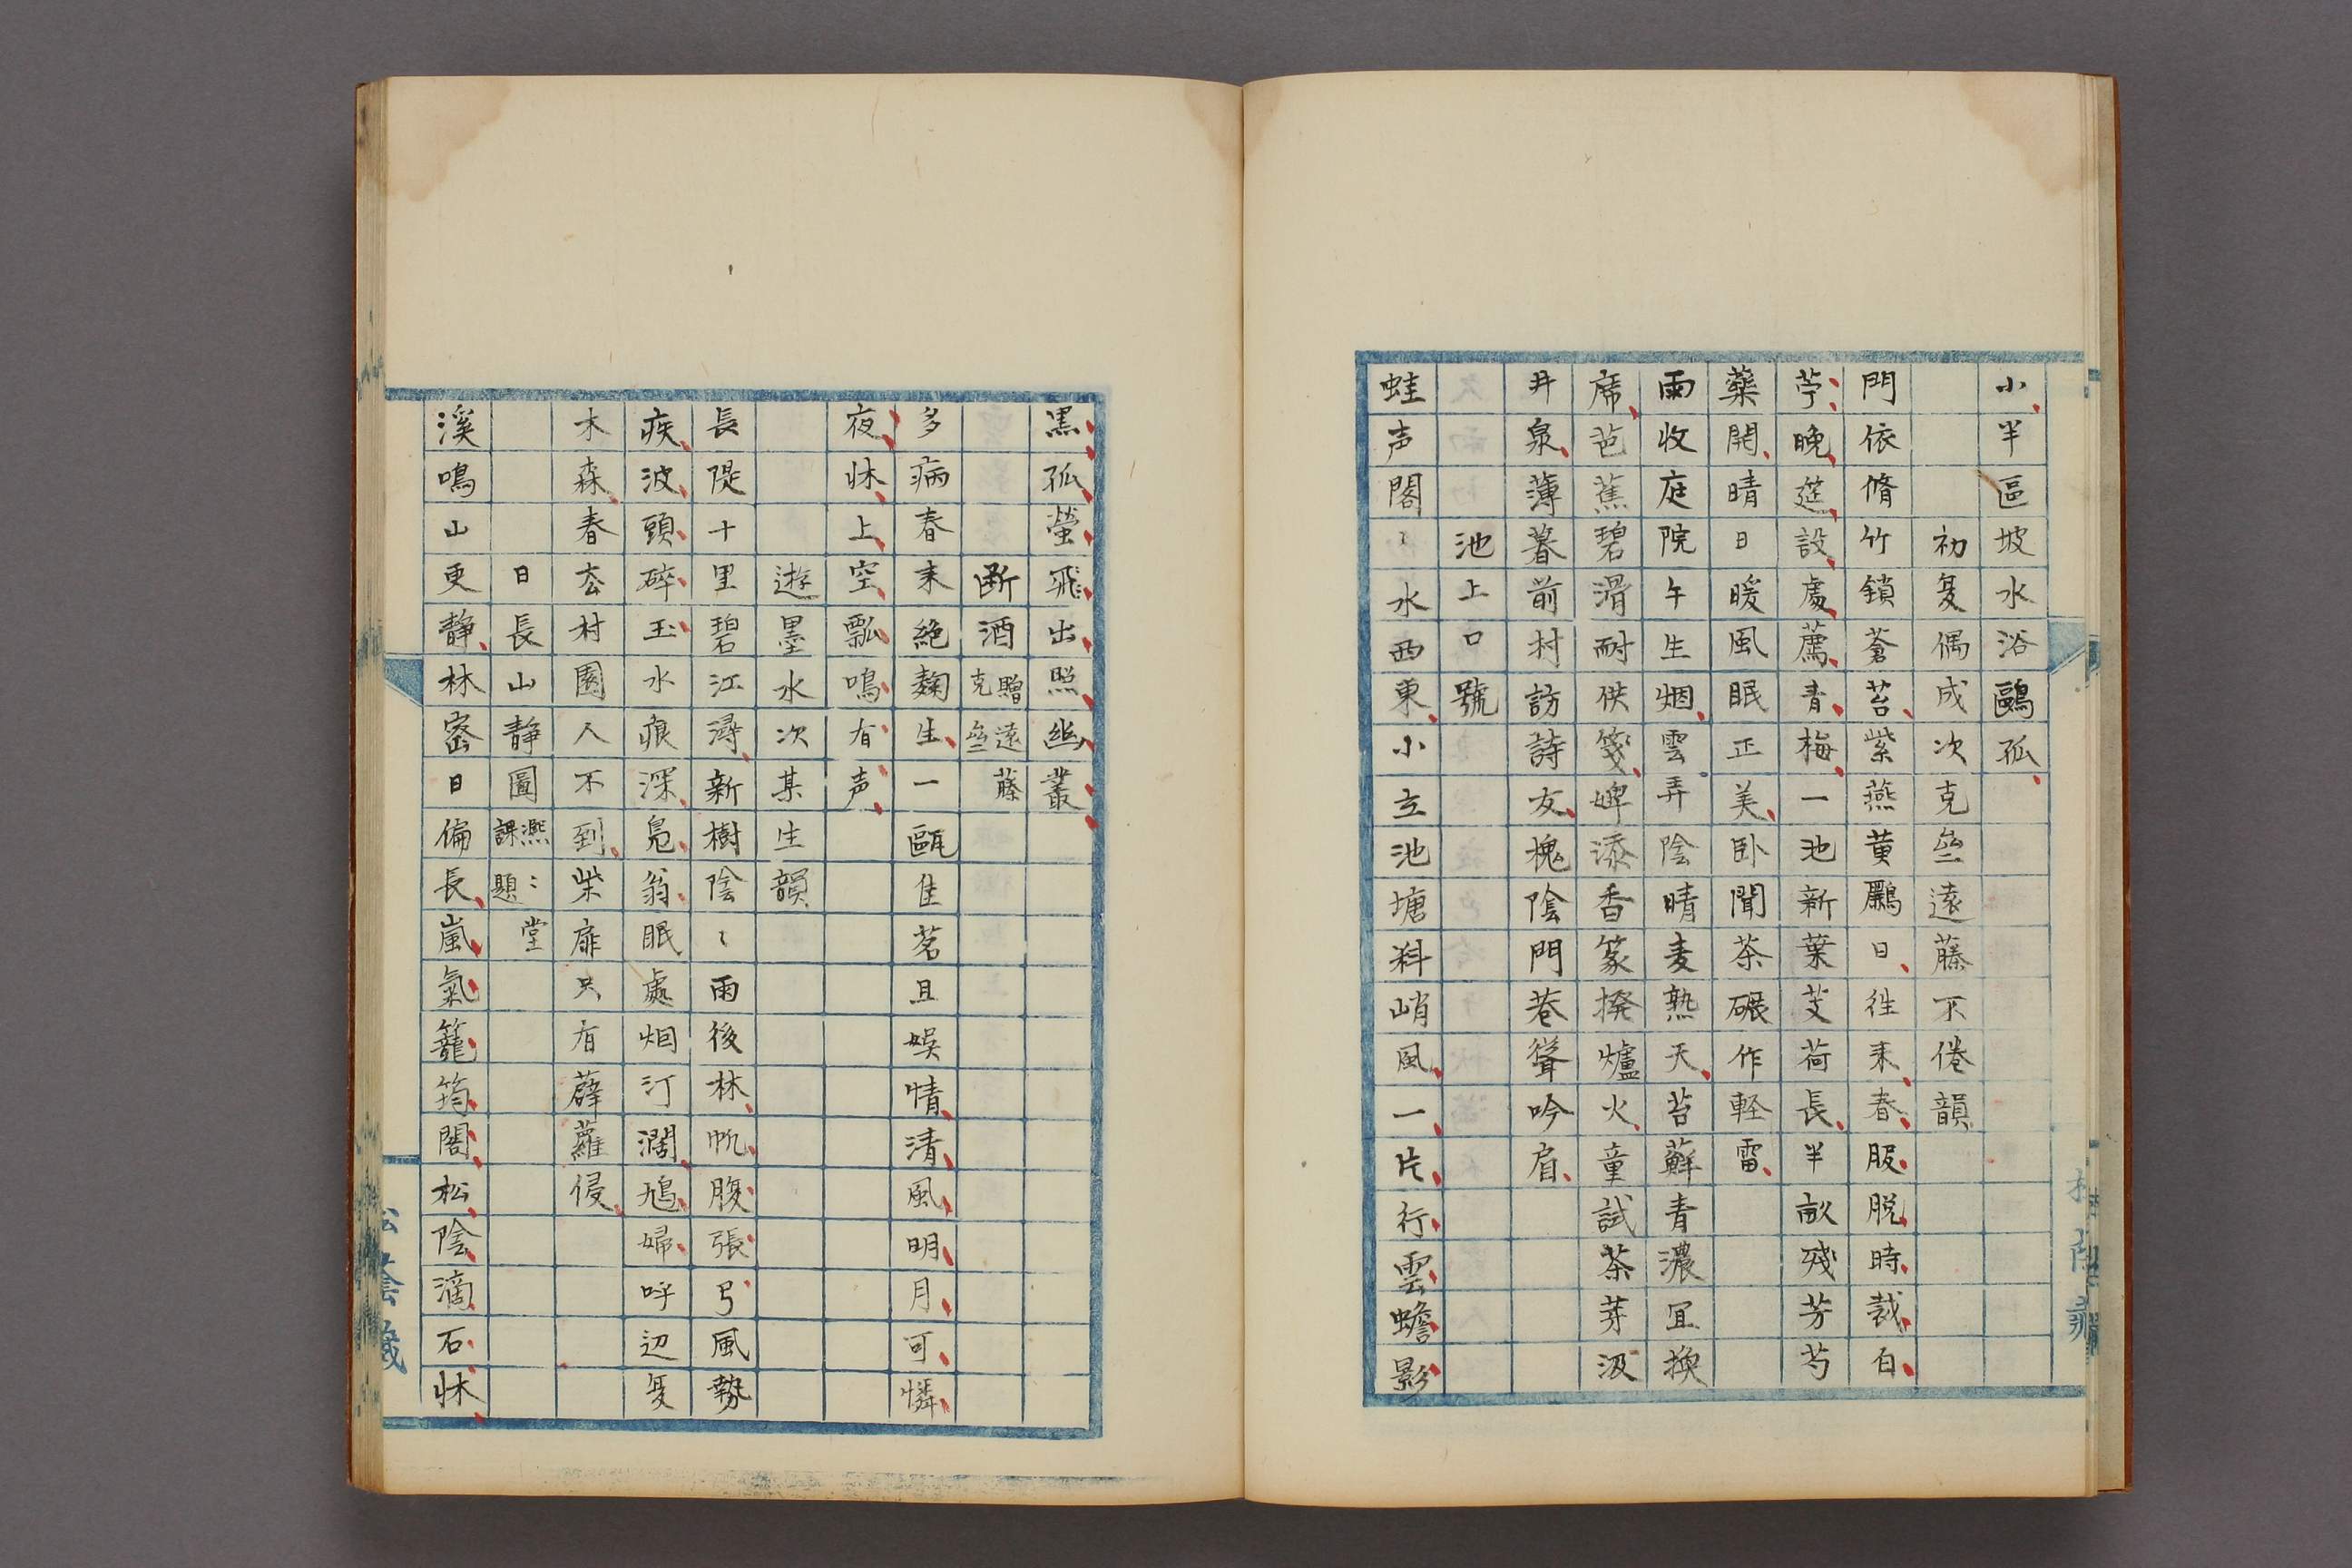 小半區坡水浴鷗孤
初夏偶成次克堂遠藤不倦韻
門依脩竹鎖蒼苔紫燕黄鸝日往来春服脱時裁白
苧晩莚設處薦青梅一池新葉芰荷長半畝残芳芍
藥開晴日暖風眠正美卧聞茶碾作軽雷
雨收庭院午生烟雲弄陰晴麦熟天苔蘚青濃宜換
席芭蕉碧滑耐供箋婢添香篆撥爐火童試茶芽汲
井泉薄暮前村訪詩友槐陰門巷聳吟肩
池上口號
蛙声閣〻水西東小立池塘料峭風一片行雲蟾影
黒孤螢飛出照幽叢
断酒贈遠藤克堂
多病春来絶麹生一甌佳茗且娯情清風明月可憐
夜牀上空瓢鳴有声
遊墨水次某生韻
長隄十里碧江潯新樹陰〻雨後林帆腹張弓風勢
疾波頭碎玉水痕深鳬翁眠處烟汀濶鳩婦呼辺夏
木森春去村園人不到柴扉只有薜蘿侵
日長山静圖熈〻堂課題
溪鳴山更静林密日偏長嵐氣籠筠閣松陰滴石牀
松陰蔵